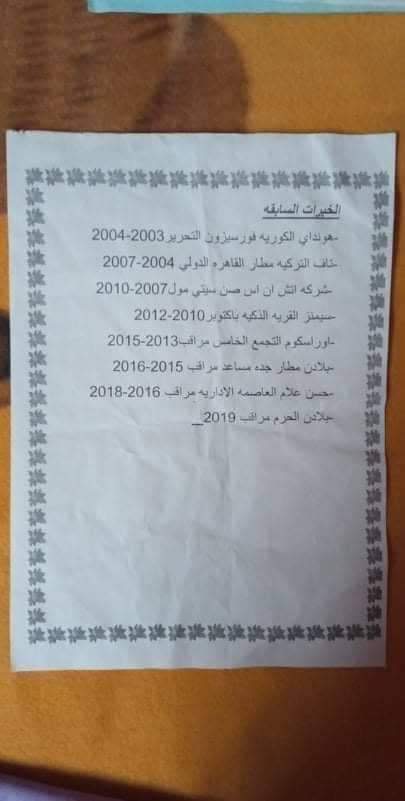 الخبرات السابقه
-هونداي الكوريه فورسيزون التحرير2003-2004
-تاف التركيه مطار القاهره الدولي 2004-2007
-شركه اتش ان اس صن سيتي مول2007-2010
-سيمنز القريه الذكيه باكتوبر2010-2012
-اوراسكوم التجمع الخامس مراقب2013-2015
-بلادن مطار جده مساعد مراقب 2015-2016
-حسن علام العاصمه الاداريه مراقب 2016-2018
-بلادن الحرم مراقب 2019_